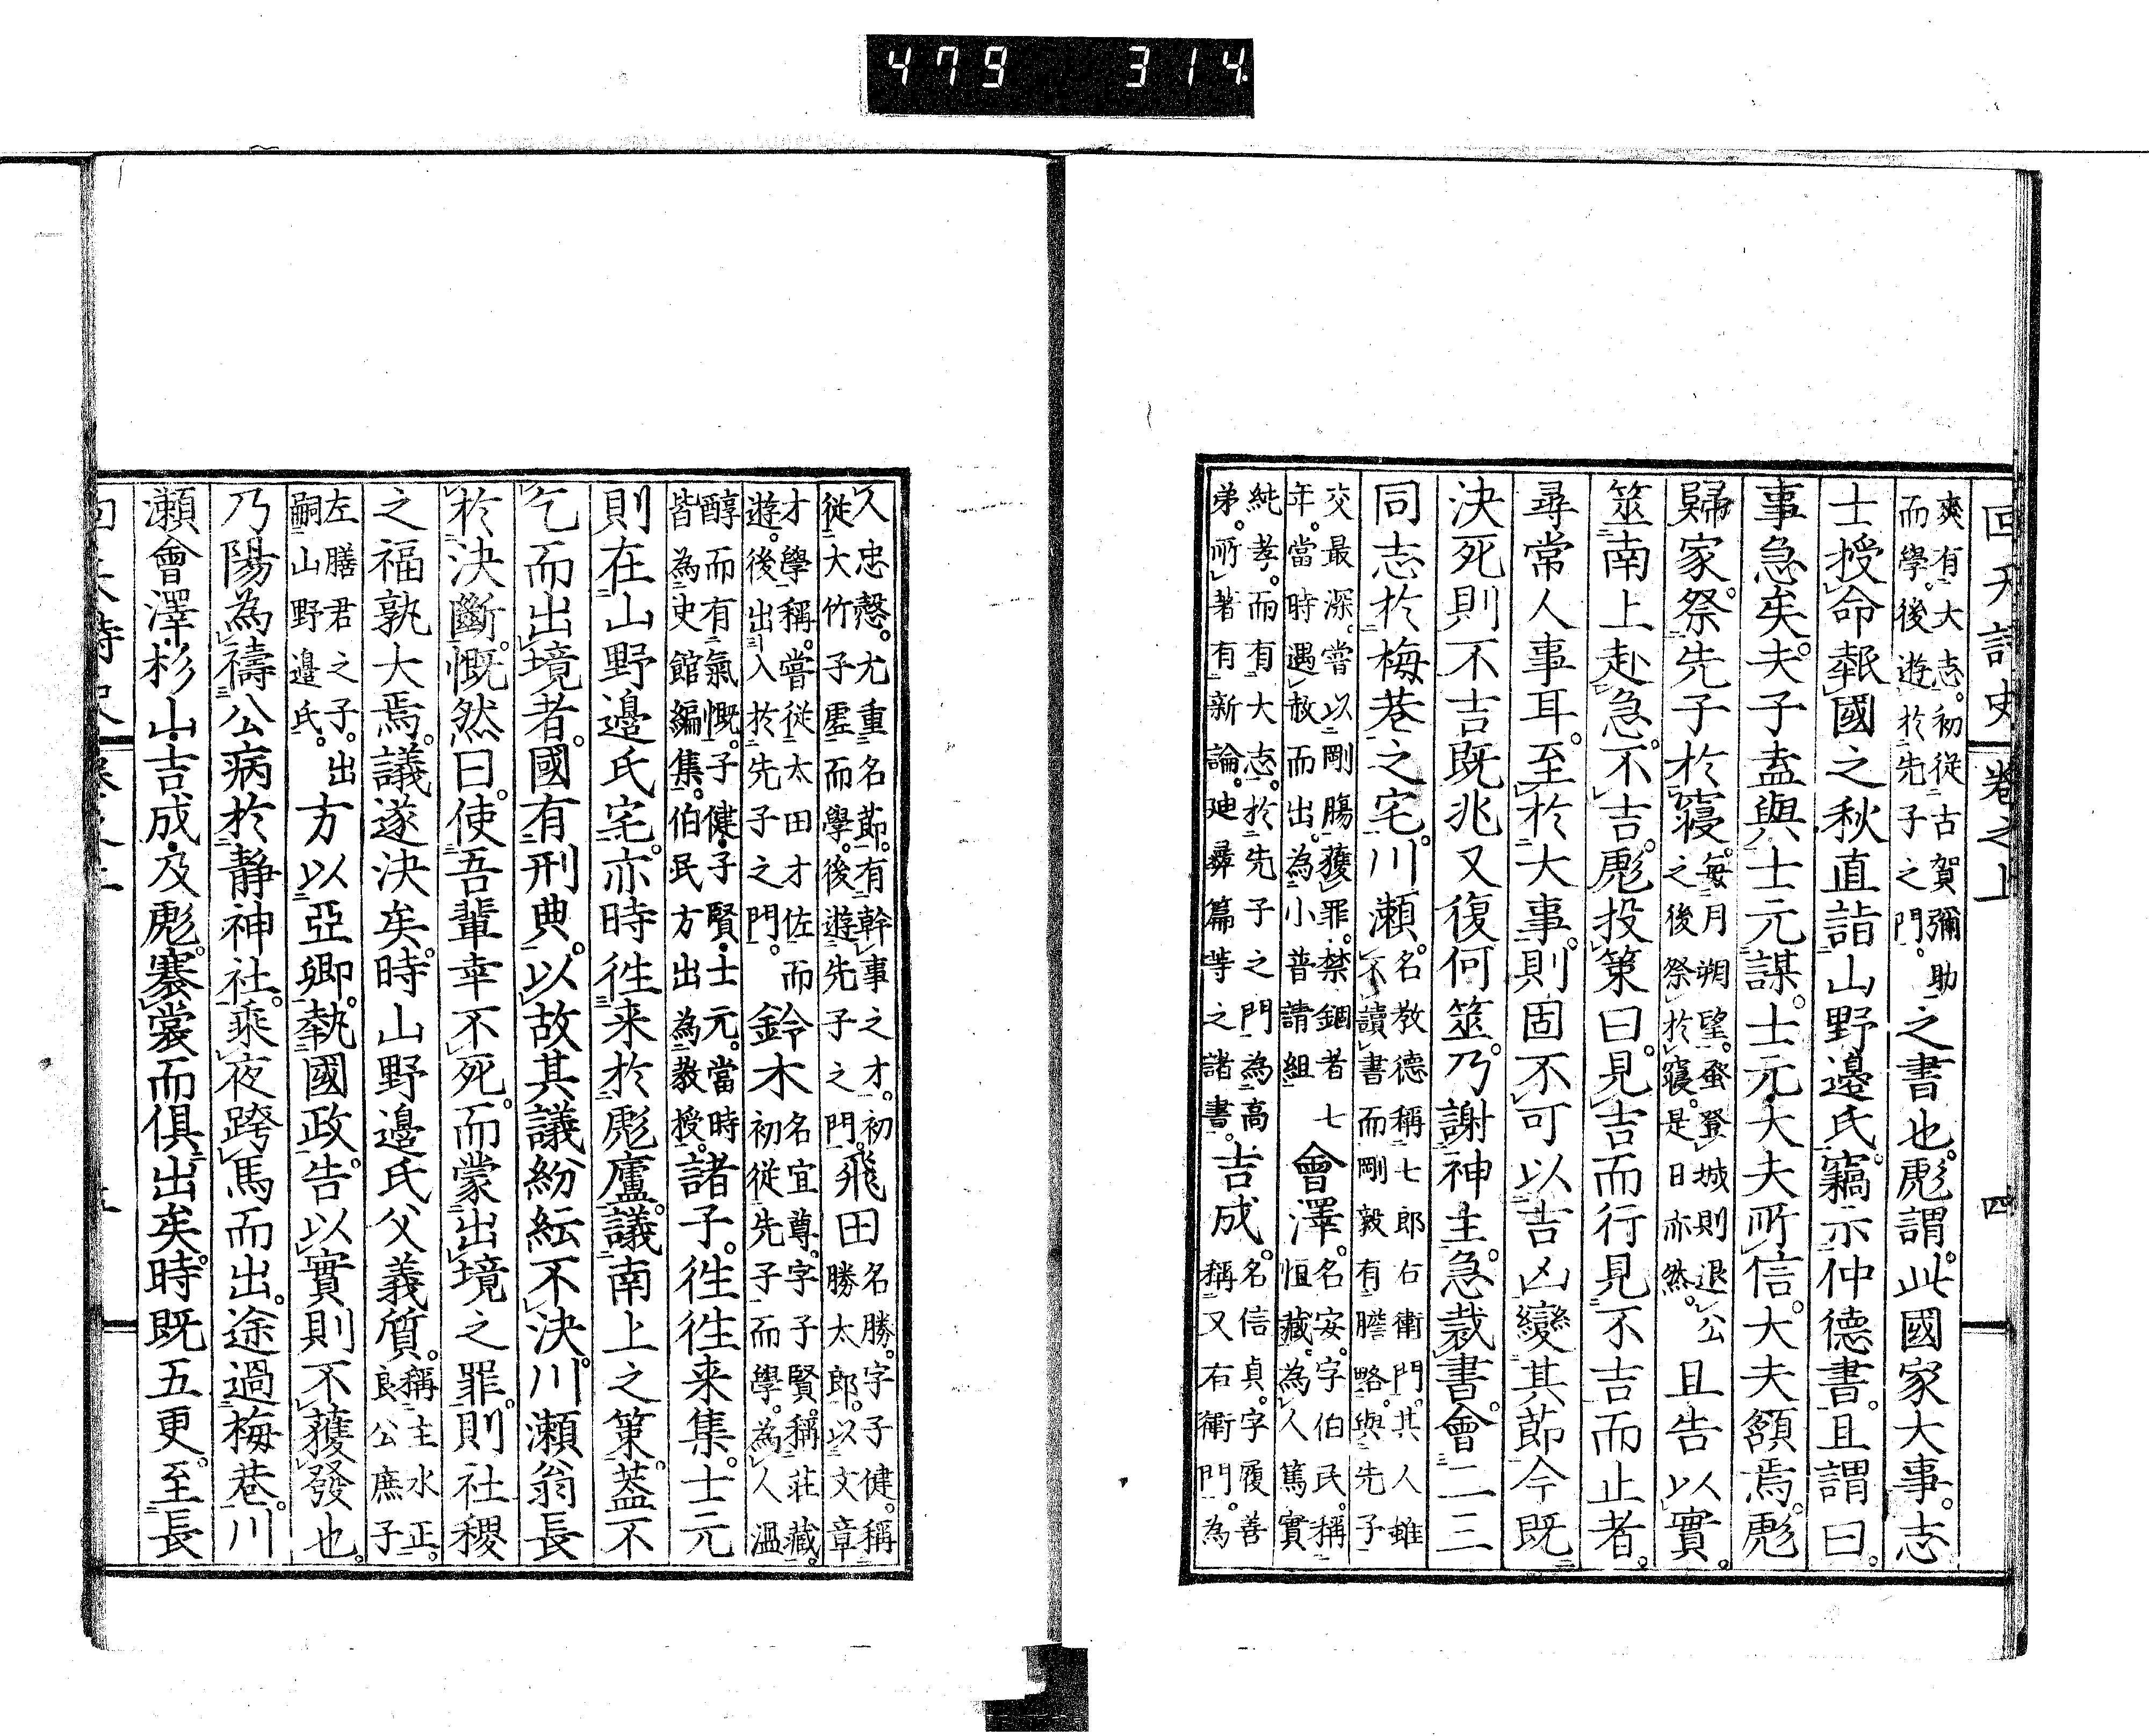 479 314
回天詩史 卷之上 四
爽有大志。初從古賀彌助
而學。後遊於先子之門。
之書也。彪謂。此國家大事。志
士授命報國之秋直詣山野邊氏。竊示仲德書。且謂曰。
事急矣。夫子盍與士元謀。士元・大夫所信。大夫頷焉。彪
歸家。祭先子於寢。
每月朔望。蚤登城則退公
之後祭於寢。是日亦然。
且告以實。
筮南上赴急。不吉。彪投策曰。見吉而行見不吉而止者。
尋常人事耳。至於大事。則固不可以吉凶變其節今既
決死則不吉既兆又復何筮。乃謝神主。急裁書。會二三
同志於梅巷之宅。川瀨。
名教德稱七郎右衛門。其人雖
不讀書而剛毅有膽略。與先子
交最深。嘗以剛腸獲罪。禁錮者七
年。當時遇赦而出。為小普請組
會澤。
名安。字伯民。稱
恒藏。為人篤實
純孝。而有大志。於先子之門為高
弟。所著有新論。迪彝篇等之諸書。
吉成。
名信貞。字履善
稱又右衛門。為
人忠愨。尤重名節。有幹事之才。初
從大竹子虛而學。後遊先子之門。
飛田
名勝。字子健。稱
勝太郎。以文章
才學稱。嘗從太田才佐而
遊。後出入於先子之門。
鈴木
名宜尊。字子賢。稱莊藏。
初從先子而學。為人溫
醇而有氣慨。子健・子賢・士元。當時
皆為史館編集。伯民方出為教授。
諸子。徃徃来集。士元
則在山野邊氏宅。亦時徃来於彪廬。議南上之策。蓋不
乞而出境者。國有刑典。以故其議紛紜不決。川瀨翁長
於決斷。慨然曰。使吾輩幸不死。而蒙出境之罪。則社稷
之福孰大焉。議遂決矣。時山野邊氏父義質。
稱主水正。
良公庶子
左膳君之子。出
嗣山野邊氏。
方以亞卿。執國政。告以實則不獲發也。
乃陽為禱公病於靜神社。乘夜跨馬而出。途過梅巷。川
瀨會澤・杉山・吉成・及彪。褰裳而俱出矣。時既五更。至長